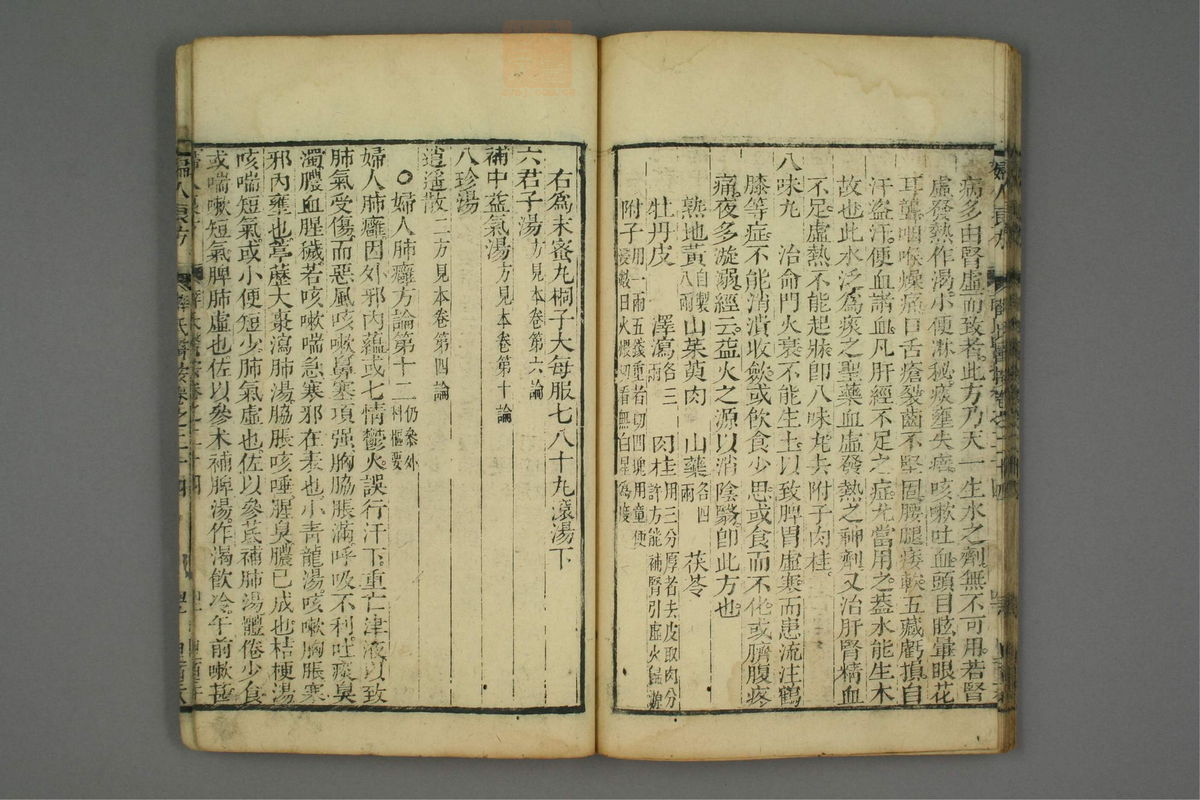 病多由腎虛而致者此方乃天一生水之劑無不可用若腎
虛發熱作渴小便淋秘痰壅失瘖咳嗽吐血頭目眩暈眼花
耳聾咽喉燥痛口舌瘡裂齒不堅固腰腿痿軟五臟虧損自
汗盜汗便血諸血凡肝經不足之症尤當用之蓋水能生木
故也此水泛為痰之聖藥血虛發熱之神劑又治肝腎精血
不足虛熱不能起牀卽八味丸去附子肉桂
八味丸 治命門火衰不能生土以致脾胃虛寒而患流注鶴
膝等症不能消潰收斂或飲食少思或食而不化或臍腹疼
痛夜多漩溺經云益火之源以消陰翳卽此方也
熟地黃自製八兩 山茱萸肉 山藥各四兩 茯苓
牡丹皮 澤瀉各三兩 肉桂用三分厚者去皮取肉分許方能補腎引虛火歸源
附子用一兩五錢重者切四塊用童便浸數日火煨切看無白星為度
右為末蜜丸桐子大每服七八十丸滾湯下
六君子湯方見本卷第六論
補中益氣湯方見本卷第十論
八珍湯
逍遙散二方見本卷第四論
○婦人肺癰方論第十二仍參外科樞要
婦人肺癰因外邪內蘊或七情鬱火誤行汗下重亡津液以致
肺氣受傷而惡風咳嗽鼻塞項强胸脇脹滿呼吸不利吐痰臭
濁膿血腥穢若咳嗽喘急寒邪在表也小青龍湯咳嗽胸脹寒
邪內壅也葶藶大棗瀉肺湯脇脹咳唾腥臭膿已成也桔梗湯
咳喘短氣或小便短少肺氣虛也佐以參芪補肺湯體倦少食
或喘嗽短氣脾肺虛也佐以參朮補脾湯作渴飲冷午前嗽甚